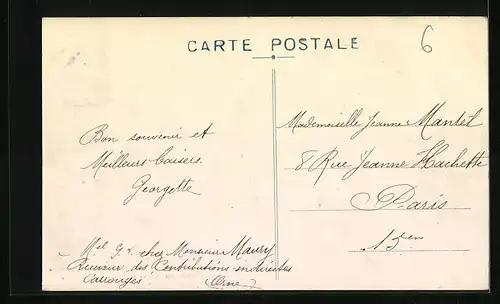 CARTE POSTALE
6
Bon souvenir et
Meilleurs baisers.
Georgette
Mademoiselle Jeanne Mantel
8 Rue Jeanne Hachette
Paris
15 em
Mel G. chez Monsieur Maury
Receveur des Contributions indirectes
Carrouges (Orne)